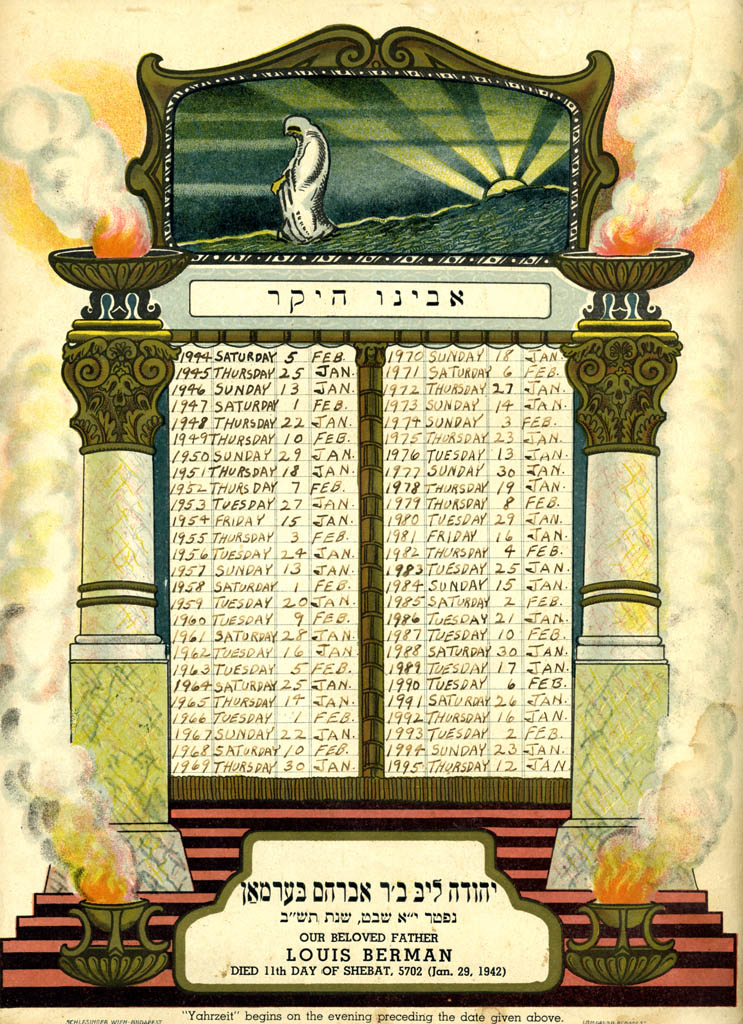 אבינו היקר
1944 SATURDAY 5 FEB.
1945 THURSDAY 25 JAN.
1946 SUNDAY 13 JAN.
1947 SATURDAY 1 FEB.
1948 THURSDAY 22 JAN.
1949 THURSDAY 10 FEB.
1950 SUNDAY 29 JAN.
1951 THURSDAY 18 JAN.
1952 THURSDAY 7 FEB.
1953 TUESDAY 27 JAN.
1954 FRIDAY 15 JAN.
1955 THURSDAY 3 FEB.
1956 TUESDAY 24 JAN.
1957 SUNDAY 13 JAN.
1958 SATURDAY 1 FEB.
1959 TUESDAY 20 JAN.
1960 TUESDAY 9 FEB.
1961 SATURDAY 28 JAN.
1962 TUESDAY 16 JAN.
1963 TUESDAY 5 FEB.
1964 SATURDAY 25 JAN.
1965 THURSDAY 14 JAN.
1966 TUESDAY 1 FEB.
1967 SUNDAY 22 JAN.
1968 SATURDAY 10 FEB.
1969 THURSDAY 30 JAN.
1970 SUNDAY 18 JAN.
1971 SATURDAY 6 FEB.
1972 THURSDAY 27 JAN.
1973 SUNDAY 14 JAN.
1974 SUNDAY 3 FEB.
1975 THURSDAY 23 JAN.
1976 TUESDAY 13 JAN.
1977 SUNDAY 30 JAN.
1978 THURSDAY 19 JAN.
1979 THURSDAY 8 FEB.
1980 TUESDAY 29 JAN.
1981 FRIDAY 16 JAN.
1982 THURSDAY 4 FEB.
1983 TUESDAY 25 JAN.
1984 SUNDAY 15 JAN.
1985 SATURDAY 2 FEB.
1986 TUESDAY 21 JAN.
1987 TUESDAY 10 FEB.
1988 SATURDAY 30 JAN.
1989 TUESDAY 17 JAN.
1990 TUESDAY 6 FEB.
1991 SATURDAY 26 JAN.
1992 THURSDAY 16 JAN.
1993 TUESDAY 2 FEB.
1994 SUNDAY 23 JAN.
1995 THURSDAY 12 JAN
יהודה ליב ב״ר אברהם בערמאן
נפטר י״א שבט, שנת תש״ב
OUR BELOVED FATHER
LOUIS BERMAN
DIED 11th DAY OF SHEBAT, 5702 (Jan. 29, 1942)
"Yahrzeit" begins on the evening preceding the date given above.
SCHLESINGER WIEN-BUDAPEST